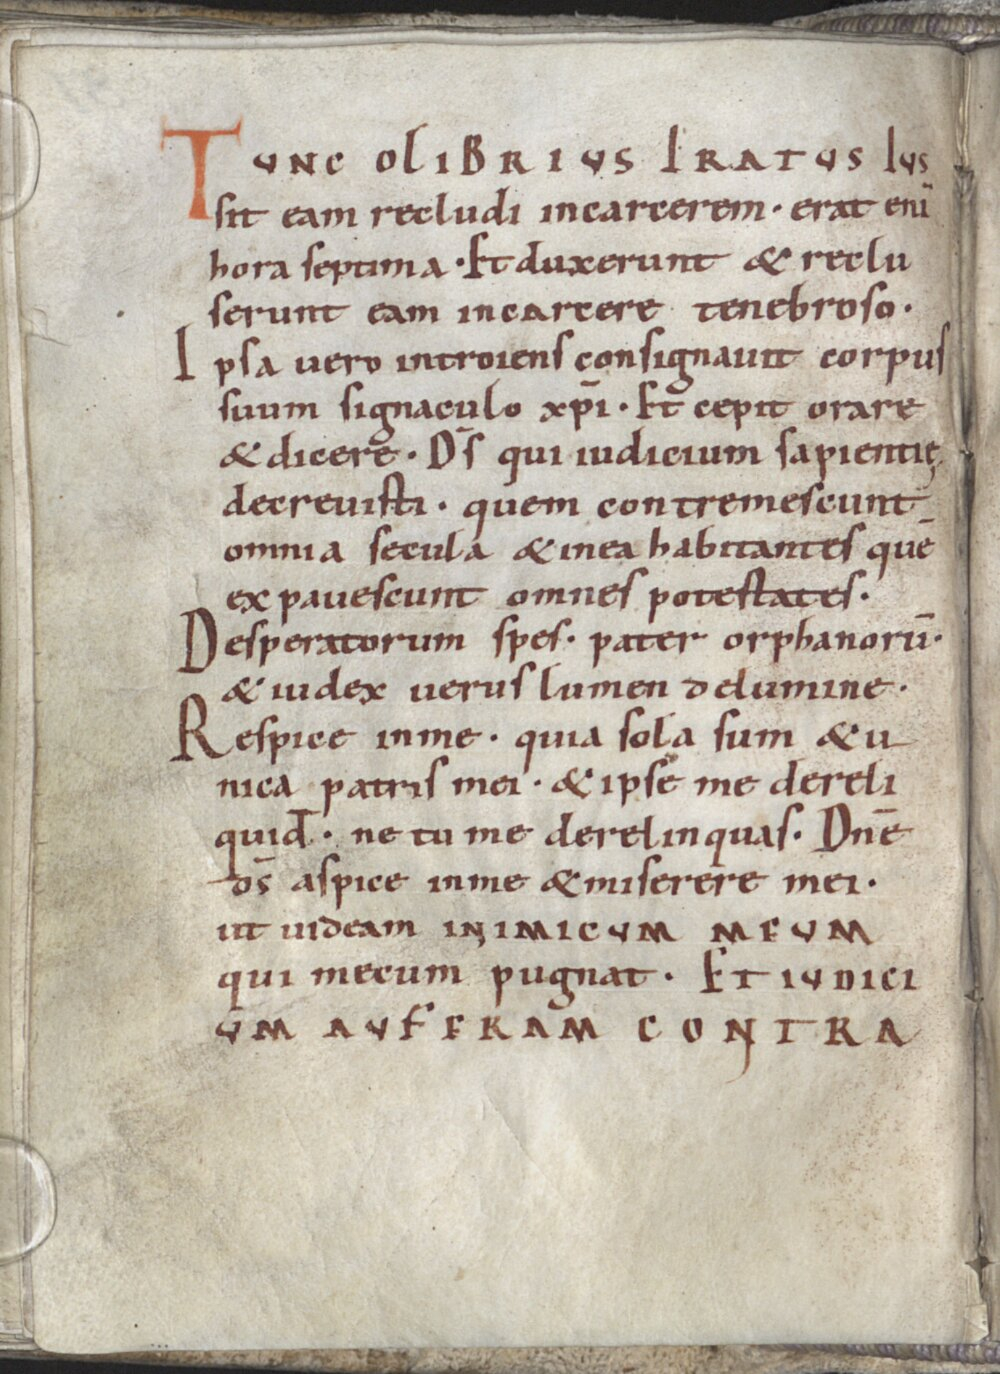 TUNC OLIBRIUS IRATUS IUS
sit eam recludi incarcerem· erat eni̅
hora septima·Et duxerunt & reclu
serunt eam incarcere tenebroso·
Ipsa uero introiens consignauit corpus
suum signaculo xp̅i· Et cepit orare
& dicere· D̅s qui iudicium sapientię
decreuisti· quem contremescunt
omnia secula & inea habitantes que̅
expauescunt omnes potestates·
Desperatorum spes· pater orphanoru̅·
& iudex uerus lumen delumine·
Respice inme· quia sola sum & u
nica patris mei· & ipse me dereli
quid· ne tu me derelinquas· Dn̅e
d̅s aspice inme & miserere mei·
ut uideam INIMICUM MEUM
qui mecum pugnat· ET IUDICI
UM AUFFERAM CONTRA